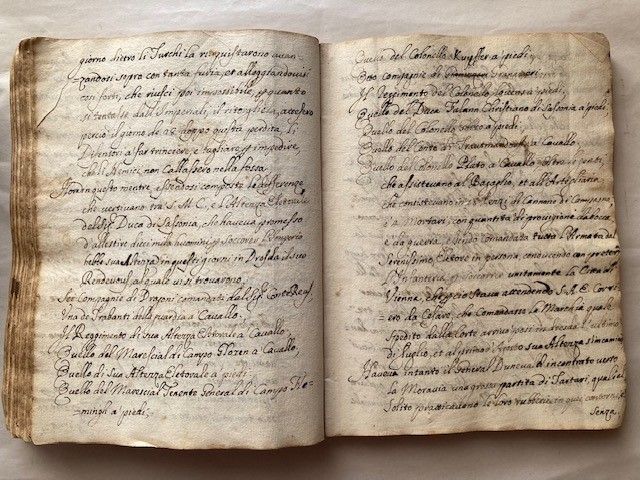 giorno dietro li Turchi la riaquistarono avan=
zandosi sopro con tanta furia, et alloggiandovisi
così forti, che riuscì poi impossibile, p quanto
si tentasse dall'Imperiali, il ritoglierla, accesero
perciò il giorno de 28 doppo questa perdita, li
Difensori a far trinciere, e tagliare p impedire,
che li Nemici non Callassero nella fossa.
Hora in questo mentre essendosi composte le differenze
che vertivano tra S. M. C. e l'Altezza Elettorale
del Sig. Duca di Sassonia, che haveva promesso
d'allestire dieci mila huomini p soccorer l'Imperio
hebbe sua Altezza in questi giorni in Dresda il suo
Rendevous, al quale vi si trovarono.
Sei Compagnie di Dragoni comandati dal Sig. Conte Reuss,
Una de Trabanti della guardia a Cavallo,
Il Reggimento di Sua Altezza Elettorale a Cavallo,
Quello del Marescial di Campo Glozen a Cavallo,
Quello di Sua Altezza Elettorale a piedi
Quello del Marescial Tenente General di Campo Fle=
mingh a piedi,
Quello del Colonello Kuffer a piedi
Due Compagnie di Granatieri
Il Regimento del Colonello a piedi,
Quello del Duca Christiano di Sassonia a piedi
Quello del Colonello a piedi,
Quello del Conte di Trautmansdorf a Cavallo,
Quello del Colonello Plato a Cavallo oltre le genti
che assistevano al Bagaglio, et all'Artegliaria
che consistevano in Pezzi di Cannone di Campagna
e Mortari, con quantità di provigione da bocca
e da guerra, e sendo comandata tutta l'Armata dal
Serenissimo Elettore in persona, conducendo
l'Infanteria, p soccorrer unitamente la Città di
Vienna, che perciò stava attendendo S. A. E. Corri=
ero da Cesare, che Comandasse la Marchia quale
Spedito dalla Corte arrivò poi in Dresda l'ultimo
di Luglio, et al primo d'Agosto sua Altezza s'incaminò
Haveva intanto il General Duneval incontrato verso
la Moravia una grossa partita di Tartari, quale al
Solito praticavano le loro rubberie in quei contorni,
Senza.